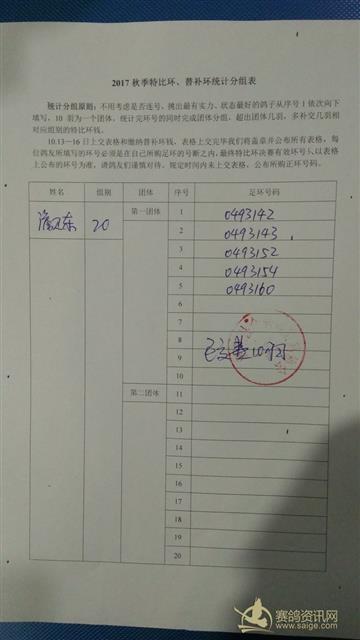 2017 秋季特比环、替补环统计分组表
统计分组原则：不用考虑是否连号，挑出最有实力、状态最好的鸽子从序号 1 依次向下
填写，10 羽为一个团体，统计完环号的同时完成团体分组，超出团体几羽，多补交几羽相
对应组别的特比环钱。
10.13—16 日上交表格和缴纳替补环钱，表格上交完毕我们将盖章并公布所有表格，每
位鸽友所填写的环号必须是在自己所购足环的号断之内，最终特比环决赛有效环号以表格
上公布的环号为准，请鸽友们谨慎对待。规定时间内未上交表格，公布所购正环号码。
姓名 组别 团体 序号 足环号码
20 第一团体 1 0493142
2 0493143
3 0493152
4 0493154
5 0493160
6
7
8
9
10
第二团体 11
12
13
14
15
16
17
18
19
20
赛鸽资讯网
www.saige.com